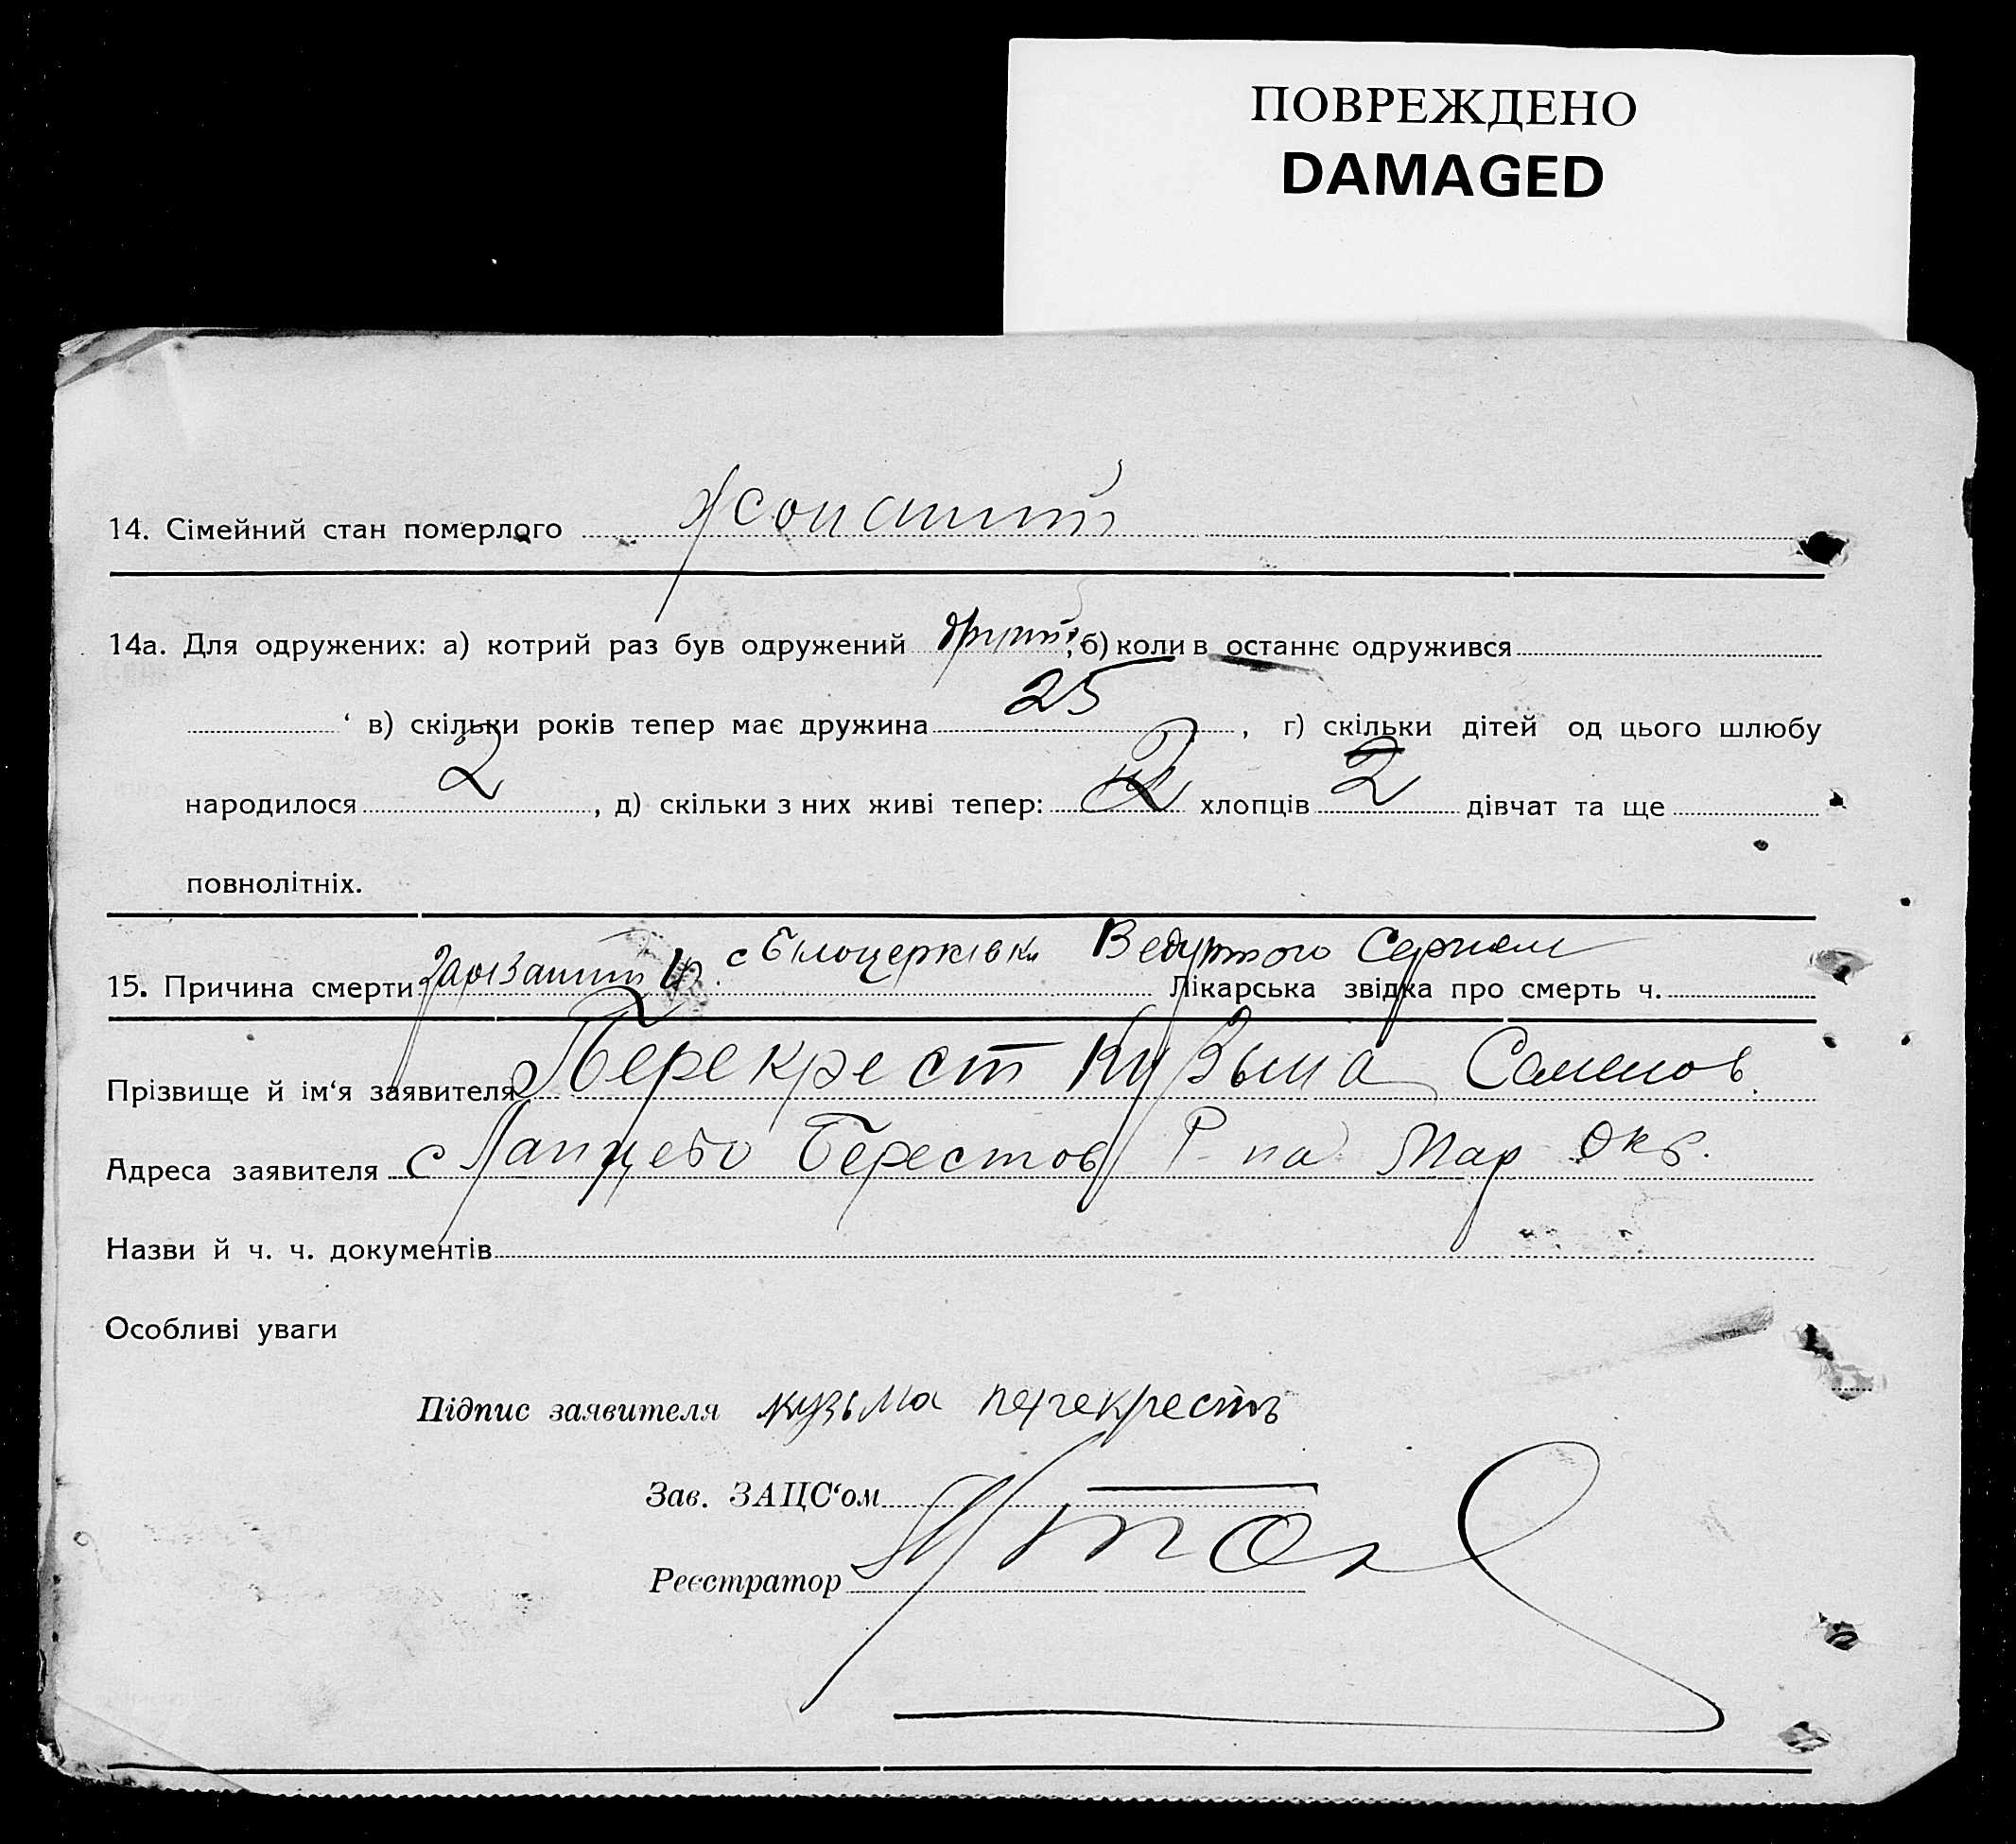 ПОВРЕЖДЕНО
DAMAGED
14. Сімейний стан померлого жонатий
14а. Для одружених: а) котрий раз був одружений другий, б) коли в останнє одружився
в) скільки років тепер має дружина 25, г) скільки дітей од цього шлюбу
народилося 2, д) скільки з них живі тепер: хлопців 2 дівчат та ще
повнолітніх.
с Білоцерківки
15. Причина смерти Лікарська звідка про смерть ч.
Прізвище й ім‘я заявителя Перекрест Кузьма Семенов.
Адреса заявителя с Берестов Р-на Мар Окр.
Назви й ч. ч. документів
Особливі уваги
Підпис заявителя кузьма перекрестъ
Зав. ЗАЦС‘ом
Реєстратор